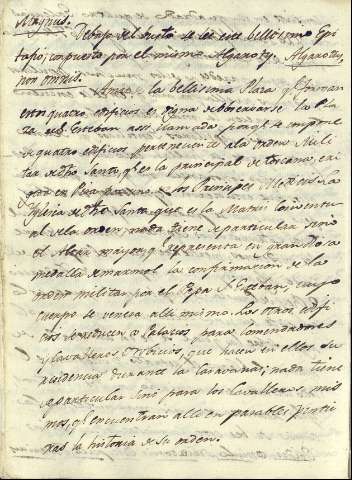 magnus.
Debajo del busto se lee este bellissimo Epi
tafio, compuesto por el mismo Algaroti, Algarottus,
non omnis.
la bellissima Plaza y ornam
entos quatro edificios es digna de observarse la Pla
za de S. Esteban assi llamada porq. se compone
de quatro edificios pertenecientes a la orden Mili
tar de dho Santo, q. es la principal de toscana,
los Principes Medicis. La
Yglesia de dho Santo que es la Matriz Conventu
al de la orden, nada tiene de particular sino
el Altar mayor, q. representa en grandiosa
medalla de marmol la confirmacion de la
orden militar por el Papa S. Estevan, cuyo
cuerpo se venera alli mismo. Los otros edifi
cios se reducen a Palacios para Comendadores
y Cavalleros que hacen en ellos su
residencia durante la caravana; nada tiene
de particular sino para los Cavalleros mis
mos, q. encuentran alli en parables pintu
ras la historia de su orden.